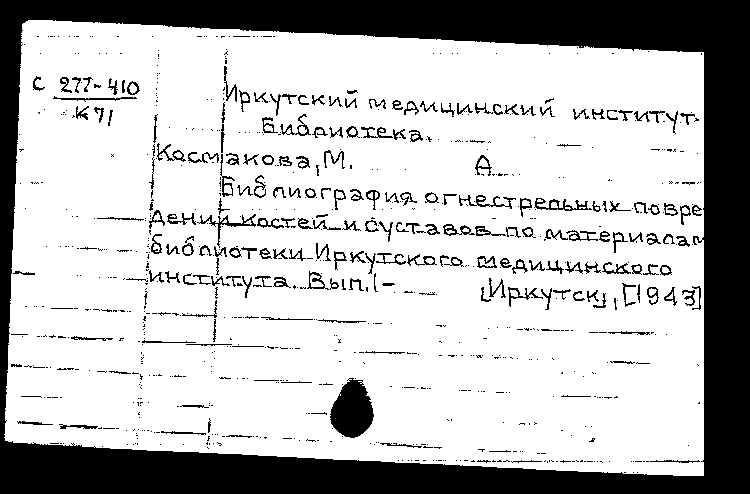 С 277-410
К71
Иркутский медицинский институт.
Библиотека.
Космакова, М. А
Библиография огнестрельных повре
дений костей и суставов по материалам
библиотеки Иркутского медицинского
института. Вып. 1- [Иркутск], [1943]